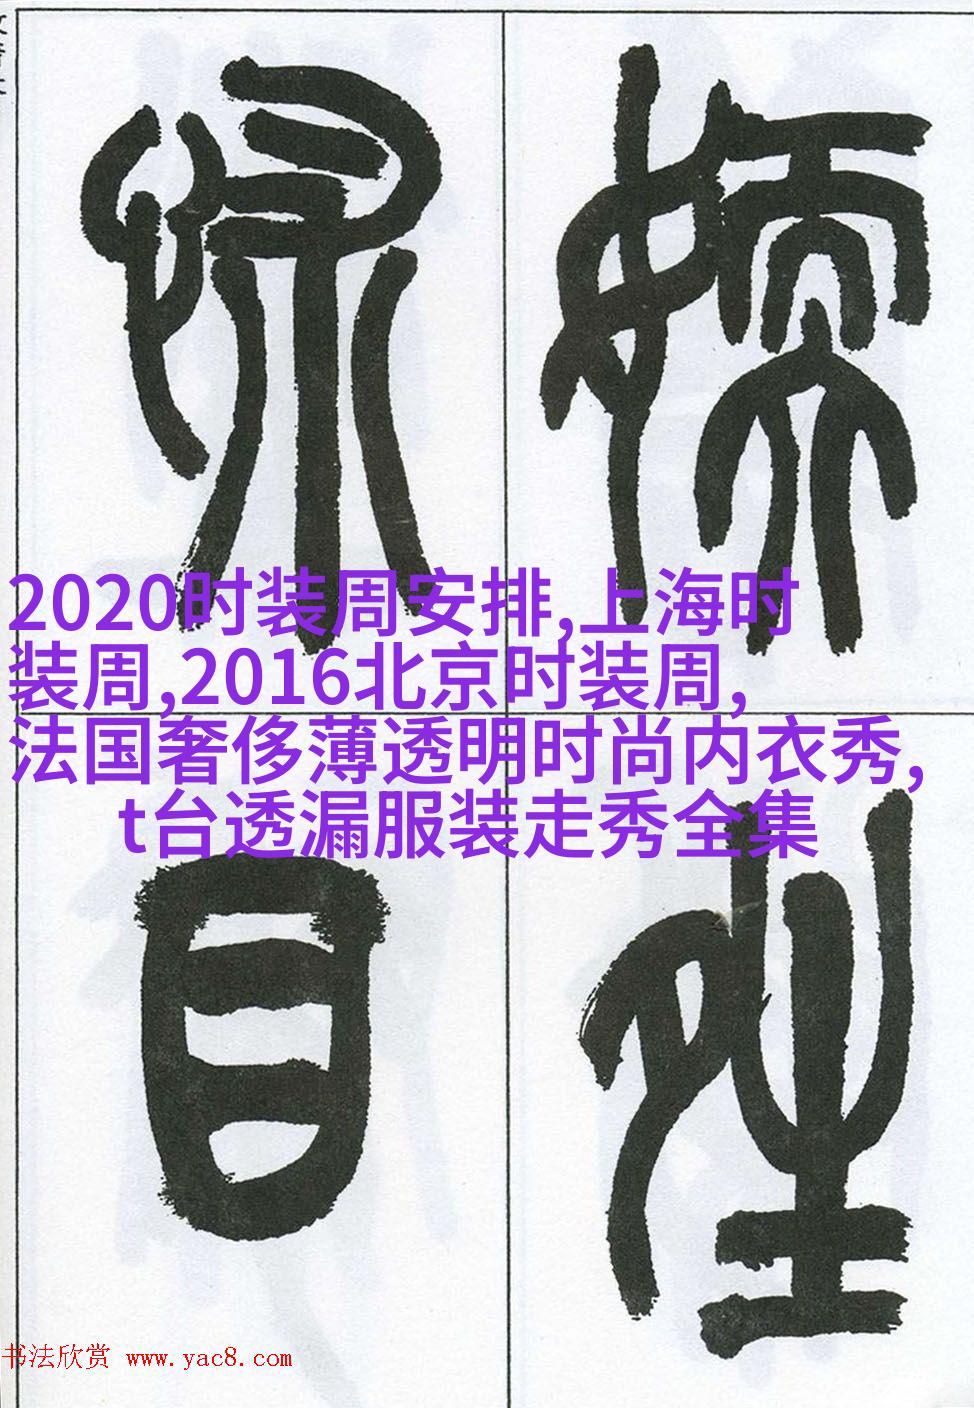 2020时装周安排,上海时
装周,2016北京时装周,
法国奢侈薄透明时尚内衣秀,
t台透漏服装走秀全集
姓
目
书法欣赏 www.yac8.com